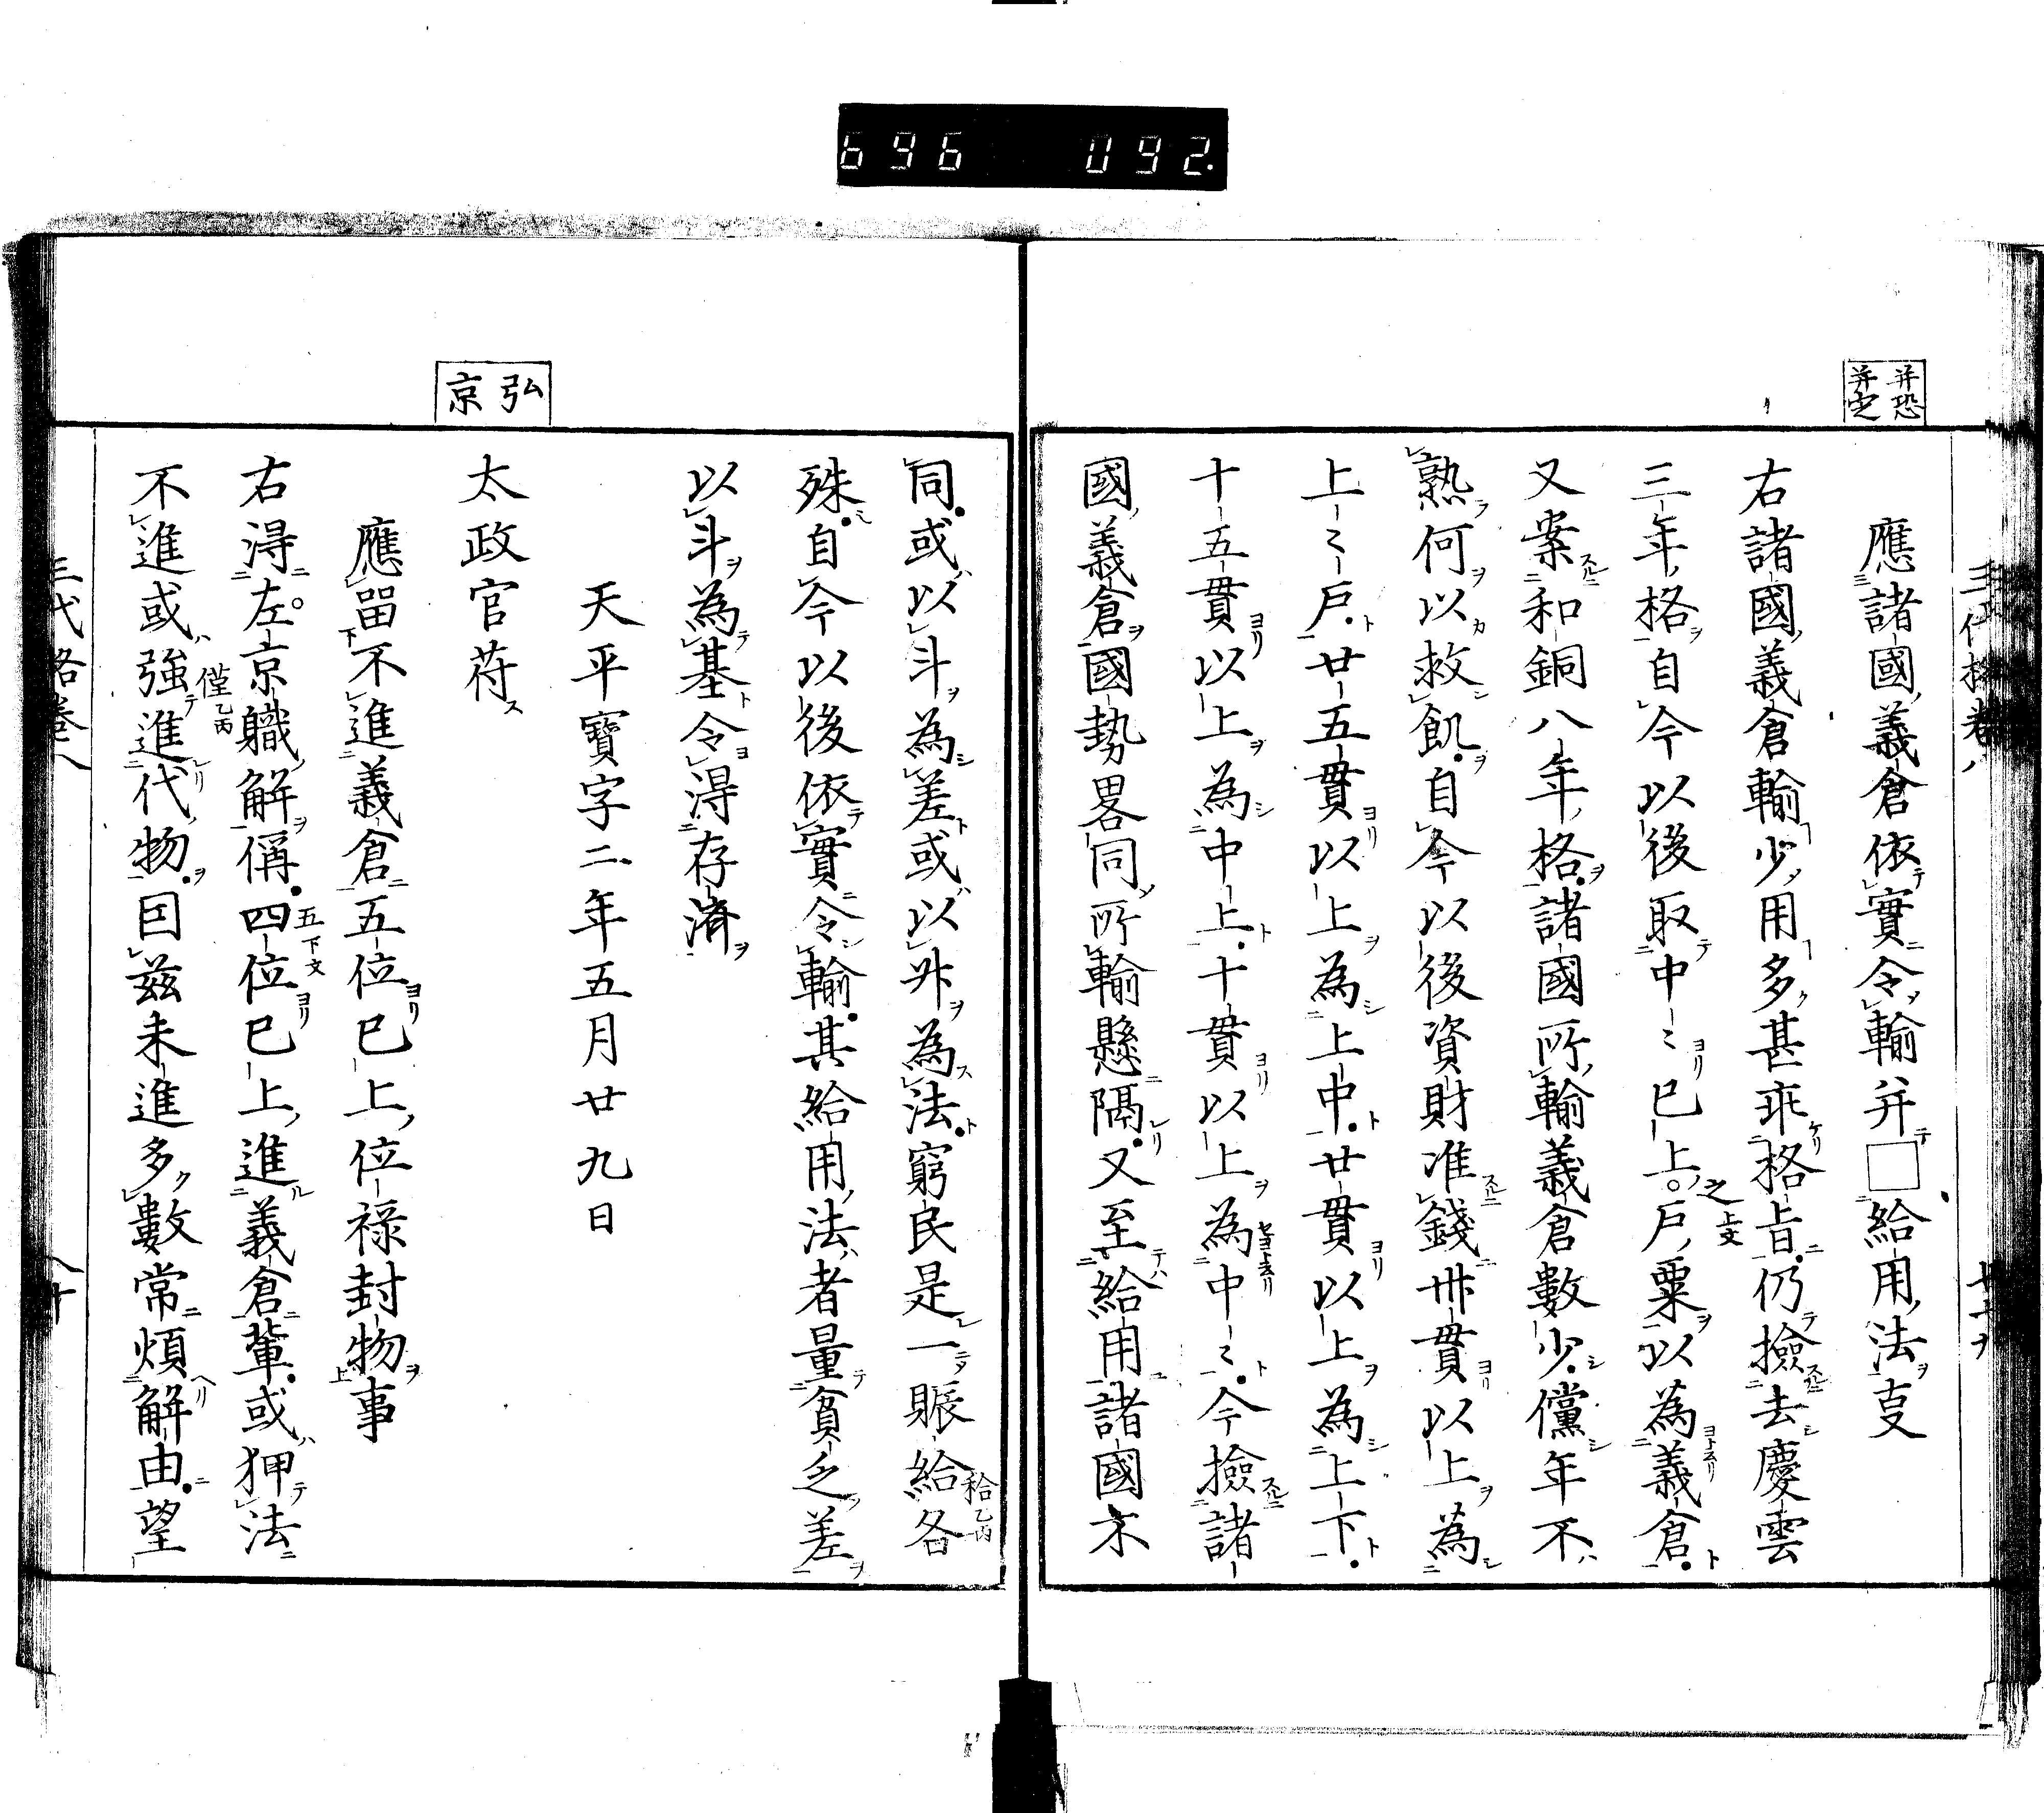 696 092.
并恐
并定
三代格卷八
應諸國義倉依實令輸并□給用法叓
右諸國義倉輸少用多甚乖格旨仍撿去慶雲
三年格自今以後取中〻巳上戶粟以為義倉
之上文
又案和銅八年格諸國所輸義倉數少儻年不
熟何以救飢自今以後資財准錢卅貫以上為
上〻戶廿五貫以上為上中廿貫以上為上下
十五貫以上為中上十貫以上為中〻今撿諸
國義倉國勢畧同所輸懸隔又至給用諸國不
同或以斗為差或以升為法窮民是一賑給各
秴乙丙
殊自今以後依實令輸其給用法者量貧乏差
以斗為基令得存濟
天平寶字二年五月廿九日
弘
京
太政官苻
應畱不進義倉五位巳上位祿封物事
右得左京職解偁四位巳上進義倉輩或狎法
五下文
不進或強進代物因茲未進多數常煩解由望
僅乙丙
三代格卷八